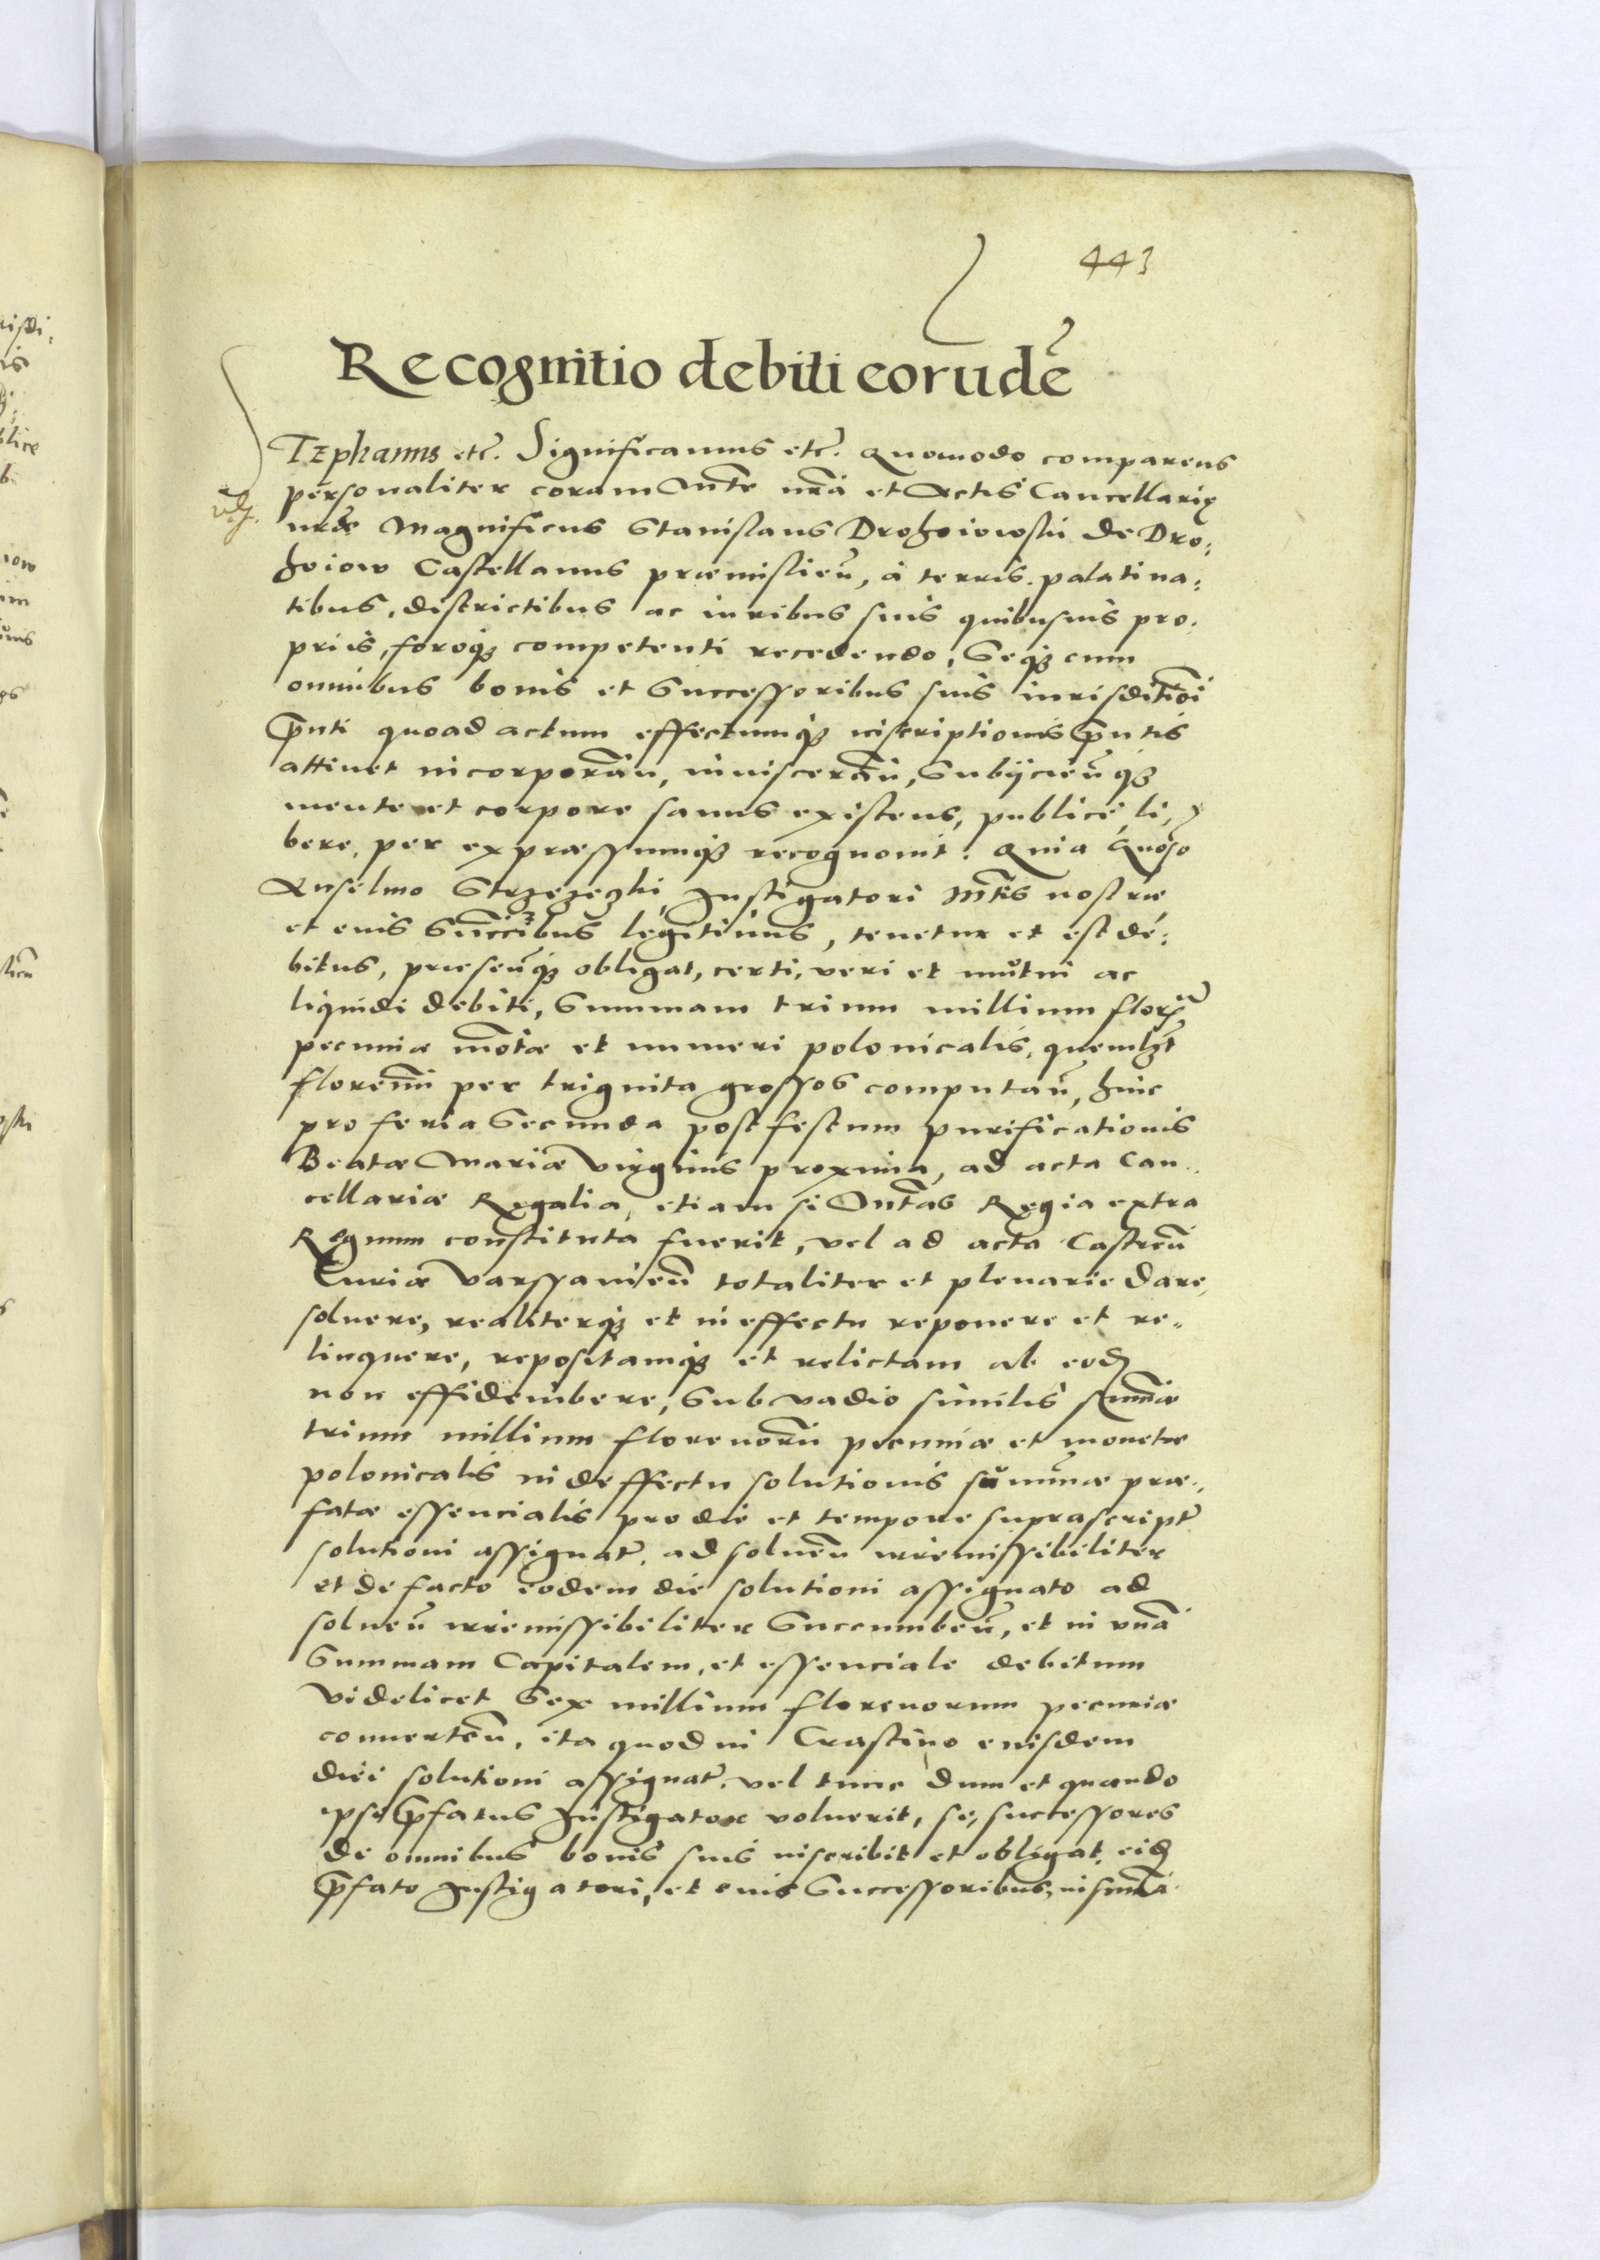 443
Recognitio debiti eorudẽ
TEphanus etc̃. Significamus etc̃. Quomodo comparens
personaliter coram Mte nr̃a et Actis Cancellarię
nr̃æ Magnificus Stanislaus Drohoiowski de Dro,
hoiow Castellanus præmislień, à terris, palatina,
tibus, districtibus ac iuribus suis quibusuis pro,
priis, foroq̃ competenti recedendo, Seq̃ cum
omnibus bonis et Successoribus suis iurisditioi
p̃nti quoad actum effectumq̃ inscriptionis p̃ntis
attinet incorporań, inuiscerań, Subijcieńq̃
mente et corpore sanus existens, publicè, li,
bere, per expræssumq̃ recognouit. Quia Gnoso
Anselmo Strzezezki Instigatori Mtis nostræ
et euis Succribus legitimis, tenetur et est de,
bitus, præseńq̃ obligat, certi, veri et mutui ac
liquidi debiti, Summam trium millium flor̃
pecuniæ mot̃æ et numeri polonicalis, quemlzt
floreni per triginta grossos computań, hinc
pro feria Secunda post festum purificationis
Beatæ Mariæ Virginis proxima, ad acta Can,
cellariæ Regalia, etiam si Mtas Regia extra
Regnum constituta fuerit, vel ad acta Castreń
Curiæ Varssavień totaliter et plenarie dare,
soluere, realiterq̃ et in effectu reponere et re,
linquere, repositamq̃ et relictam ab eod̃
non effideiubere, Sub vadio similis summæ
trium millium florenorũ pecuniæ et monetæ
polonicalis in deffectu solutionis summæ præ,
fatæ essencialis pro die et tempore suprascript̃
solutioni assignat̃, ad solueń irremissibiliter
et de facto eodem die solutioni assignato ad
solueń irremissibiliter Succumbeń, et in vnã
Summam Capitalem, et essenciale debitum
videlicet Sex millium florenorum pecuniæ
conuerteń, ita quod in Crastino euisdem
diei solutioni assignat̃, vel tunc dum et quando
ipse p̃fatus Instigator voluerit, se, successores
de omnibus bonis suis inscribit et obligat, eid̃
p̃fato Instigatori, et euis Successoribus,